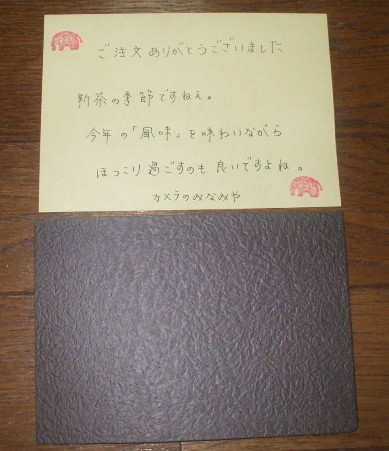 ご注文ありがとうございました
新茶の季節ですねぇ。
今年の「風味」を味わいながら
ほっこり過ごすのも良いですよね。
カメラのみなみや